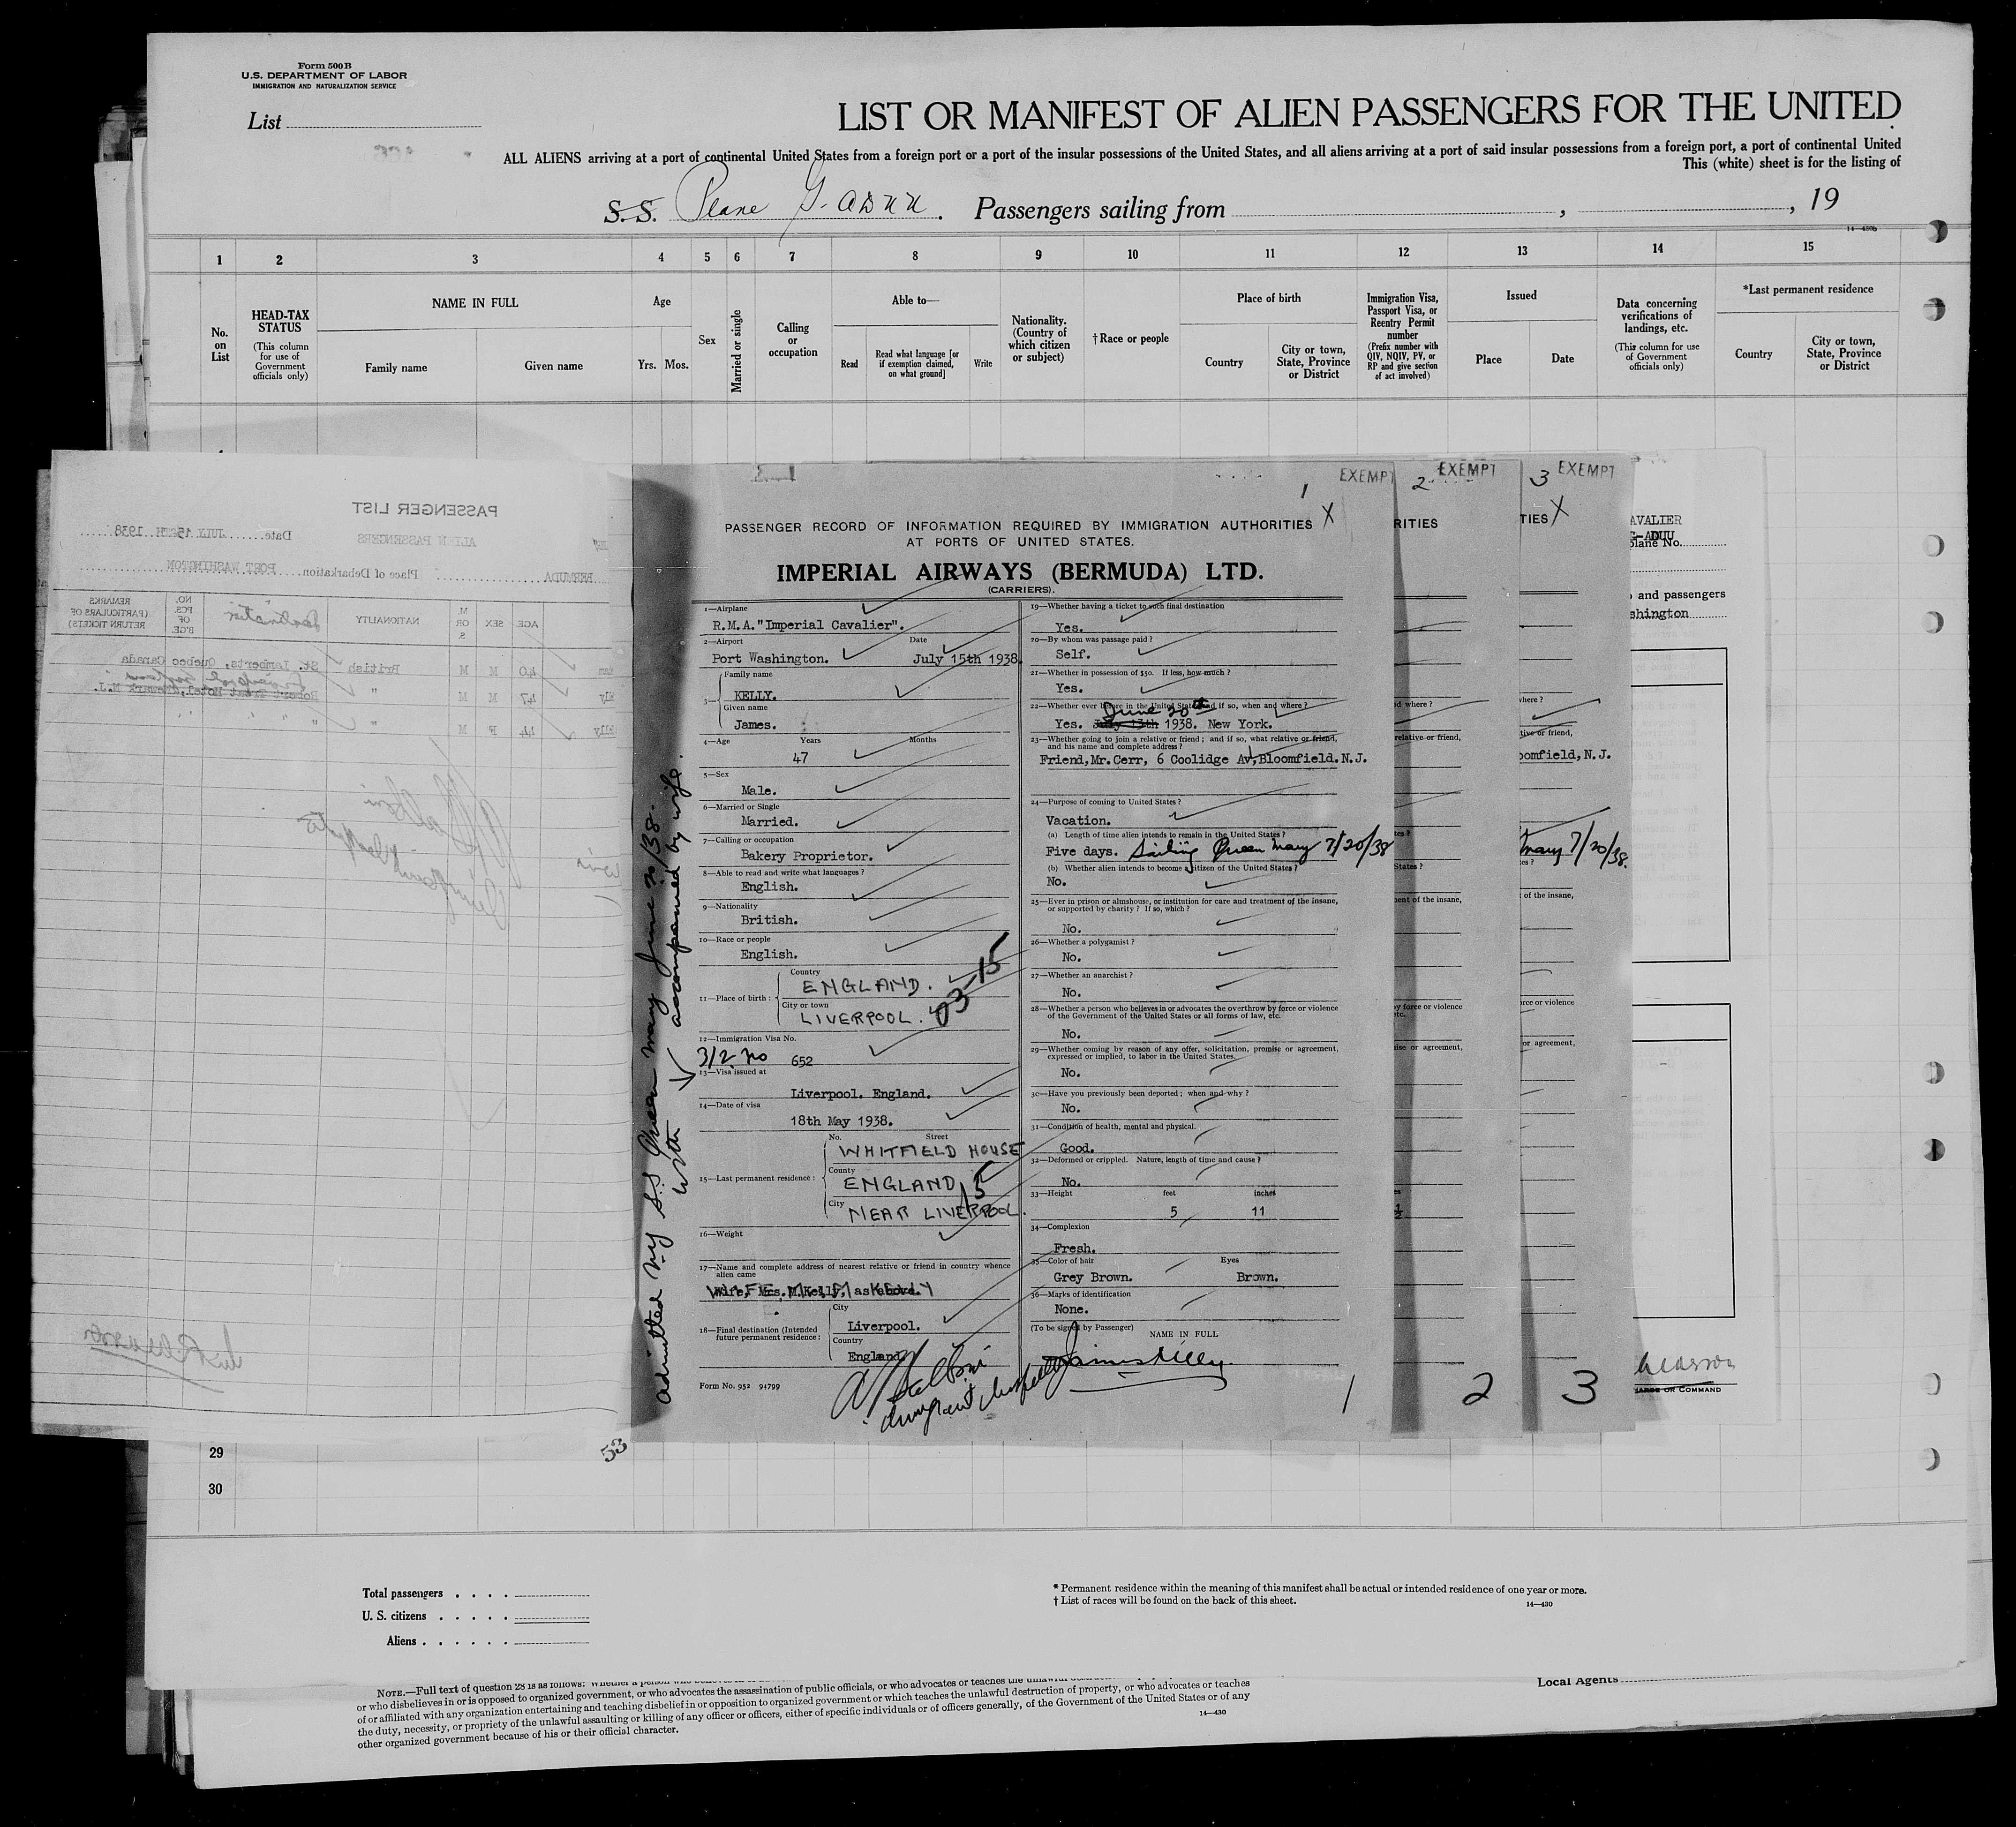 Form 500 B
U.S. DEPARTMENT OF LABOR
IMMIGRATION AND NATURALIZATION SERVICE
List
LIST OR MANIFEST OF ALIEN PASSENGERS FOR THE UNITED
ALL ALIENS arriving at a port of continental United States from a foreign port or a port of the insular possessions of the United States, and all aliens arriving at a port of said insular possessions from a foreign port, a port of continental United
This (white) sheet is for the listing of
S.S. Plane G-ADUU. Passengers sailing from , , 19
14—430b
1 2 3 4 5 6 7 8 9 10 11 12 13 14 15
No. on List
HEAD-TAX STATUS
(This column for use of Government officials only)
NAME IN FULL
Family name Given name
Age
Yrs. Mos.
Sex
Married or single
Calling or occupation
Able to—
Read
Read what language [or if exemption claimed, on what ground]
Write
Nationality. (Country of which citizen or subject)
† Race or people
Place of birth
Country
City or town, State, Province or District
Immigration Visa, Passport Visa, or Reentry Permit number
(Prefix number with QIV, NQIV, PV, or RP and give section of act involved)
Issued
Place Date
Data concerning verifications of landings, etc.
(This column for use of Government officials only)
*Last permanent residence
Country
City or town, State, Province or District
PASSENGER LIST
ALIEN PASSENGERS
Date JULY 15TH 1938
BERMUDA Place of Debarkation PORT WASHINGTON
AGE SEX M. OR S. NATIONALITY Destination NO. OF PCS. B'G'E. REMARKS (PARTICULARS OF RETURN TICKETS)
40 M M British St. Lamberts, Quebec Canada
47 M M " Robert Treat Hotel, Newark N.J.
44 F M " " "
admitted N.Y S.S Queen Mary June 20/38.
with accompanied by wife.
1 EXEMPT
X
PASSENGER RECORD OF INFORMATION REQUIRED BY IMMIGRATION AUTHORITIES
AT PORTS OF UNITED STATES.
IMPERIAL AIRWAYS (BERMUDA) LTD.
(CARRIERS).
1—Airplane
R.M.A."Imperial Cavalier".
2—Airport Date
Port Washington. July 15th 1938.
3— Family name
KELLY.
Given name
James.
4—Age Years Months
47
5—Sex
Male.
6—Married or Single
Married.
7—Calling or occupation
Bakery Proprietor.
8—Able to read and write what languages?
English.
9—Nationality
British.
10—Race or people
English.
11—Place of birth:
Country
ENGLAND.
City or town
LIVERPOOL.
03-15
12—Immigration Visa No.
3/2 no 652
13—Visa issued at
Liverpool. England.
14—Date of visa
18th May 1938.
15—Last permanent residence:
No. Street
WHITFIELD HOUSE
County
ENGLAND 15
City
NEAR LIVERPOOL.
16—Weight
17—Name and complete address of nearest relative or friend in country whence alien came
Wife, Mrs. M. Kelly, as above.
18—Final destination (Intended future permanent residence:
City
Liverpool.
Country
England
Form No. 952 94799
19—Whether having a ticket to such final destination
Yes.
20—By whom was passage paid?
Self.
21—Whether in possession of $50. If less, how much?
Yes.
22—Whether ever before in the United States and if so, when and where?
June 20th
Yes. July 13th 1938. New York.
23—Whether going to join a relative or friend; and if so, what relative or friend, and his name and complete address?
Friend,Mr.Cerr, 6 Coolidge Av,Bloomfield.N.J.
24—Purpose of coming to United States?
Vacation.
(a) Length of time alien intends to remain in the United States?
Five days. Sailing Queen Mary 7/20/38
(b) Whether alien intends to become a citizen of the United States?
No.
25—Ever in prison or almshouse, or institution for care and treatment of the insane, or supported by charity? If so, which?
No.
26—Whether a polygamist?
No.
27—Whether an anarchist?
No.
28—Whether a person who believes in or advocates the overthrow by force or violence of the Government of the United States or all forms of law, etc.
No.
29—Whether coming by reason of any offer, solicitation, promise or agreement, expressed or implied, to labor in the United States.
No.
30—Have you previously been deported; when and why?
No.
31—Condition of health, mental and physical.
Good.
32—Deformed or crippled. Nature, length of time and cause?
No.
33—Height feet inches
5 11
34—Complexion
Fresh.
35—Color of hair Eyes
Grey Brown. Brown.
36—Marks of identification
None.
(To be signed by Passenger)
NAME IN FULL
James Kelly
Immigrant Inspector
1
2 EXEMPT
RITIES
d where?
relative or friend,
tes?
States?
ment of the insane,
y force or violence
etc.
ise or agreement,
2
3 EXEMPT
TIES X
where?
tive or friend,
oomfield,N.J.
Mary 7/20/38.
es?
of the insane,
orce or violence
or agreement,
3
AVALIER
G-ADUU
plane No.
and passengers
shington
OR COMMAND
29
53
30
Total passengers
U. S. citizens
Aliens
* Permanent residence within the meaning of this manifest shall be actual or intended residence of one year or more.
† List of races will be found on the back of this sheet.
14—430
NOTE.—Full text of question 28 is as follows:
or who disbelieves in or is opposed to organized government, or who advocates the assassination of public officials, or who advocates or teaches the unlawful
of or affiliated with any organization entertaining and teaching disbelief in or opposition to organized government or which teaches the unlawful destruction of property, or who advocates or teaches
the duty, necessity, or propriety of the unlawful assaulting or killing of any officer or officers, either of specific individuals or of officers generally, of the Government of the United States or of any
other organized government because of his or their official character.
14—430
Local Agents